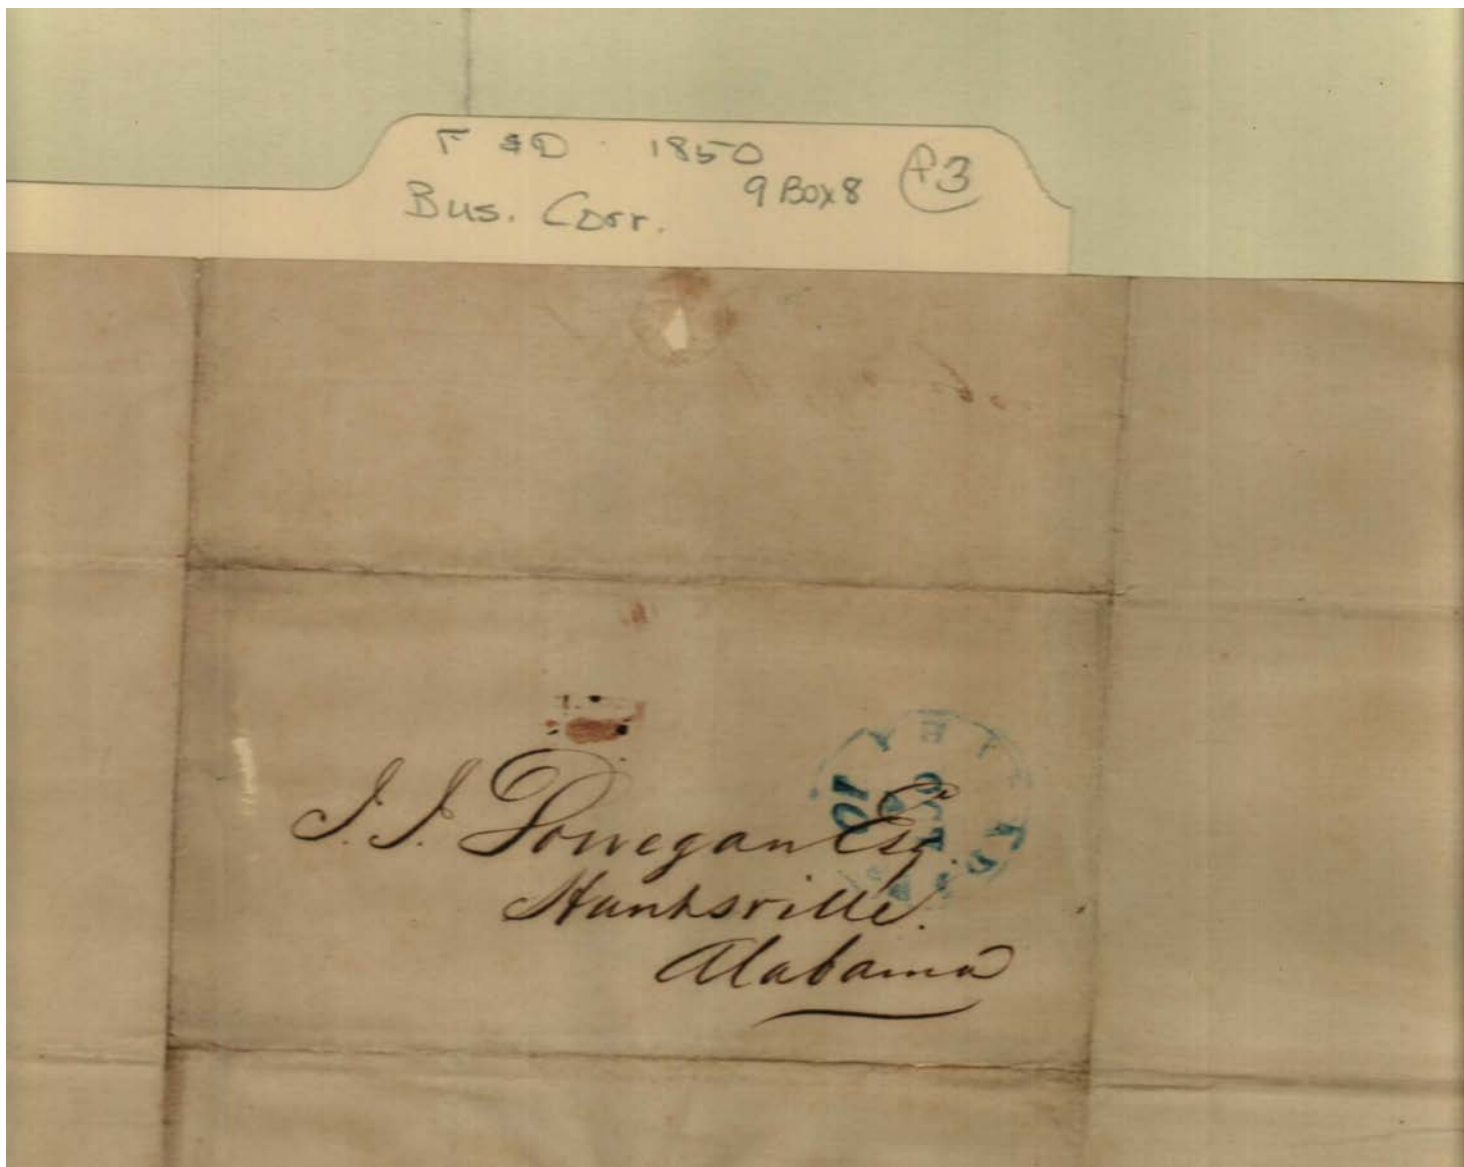 F & D 1850
9 Box 8
P3
Bus. Corr.
OCT
10
J. J. Donegan Esq.
Huntsville.
Alabama